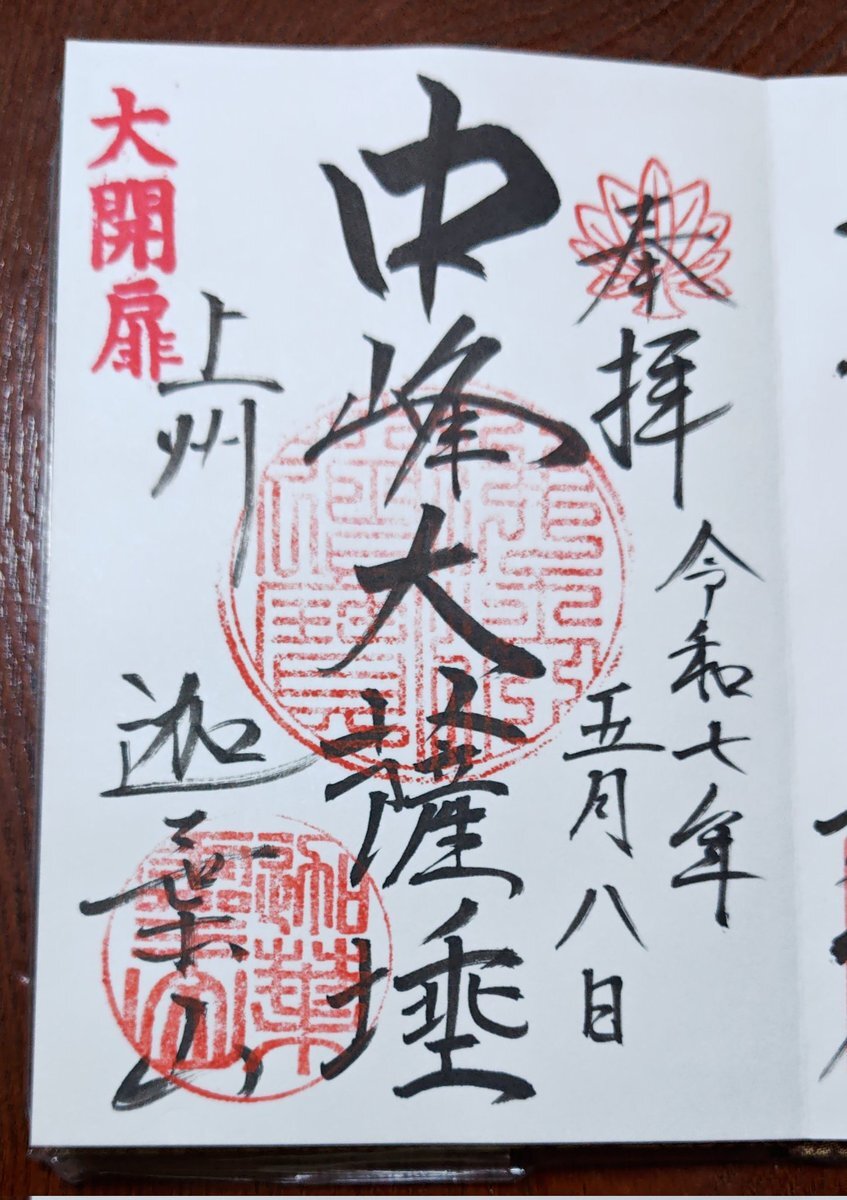 奉拝
令和七年
五月八日
中峰大薩埵
上州
迦葉山
大開扉